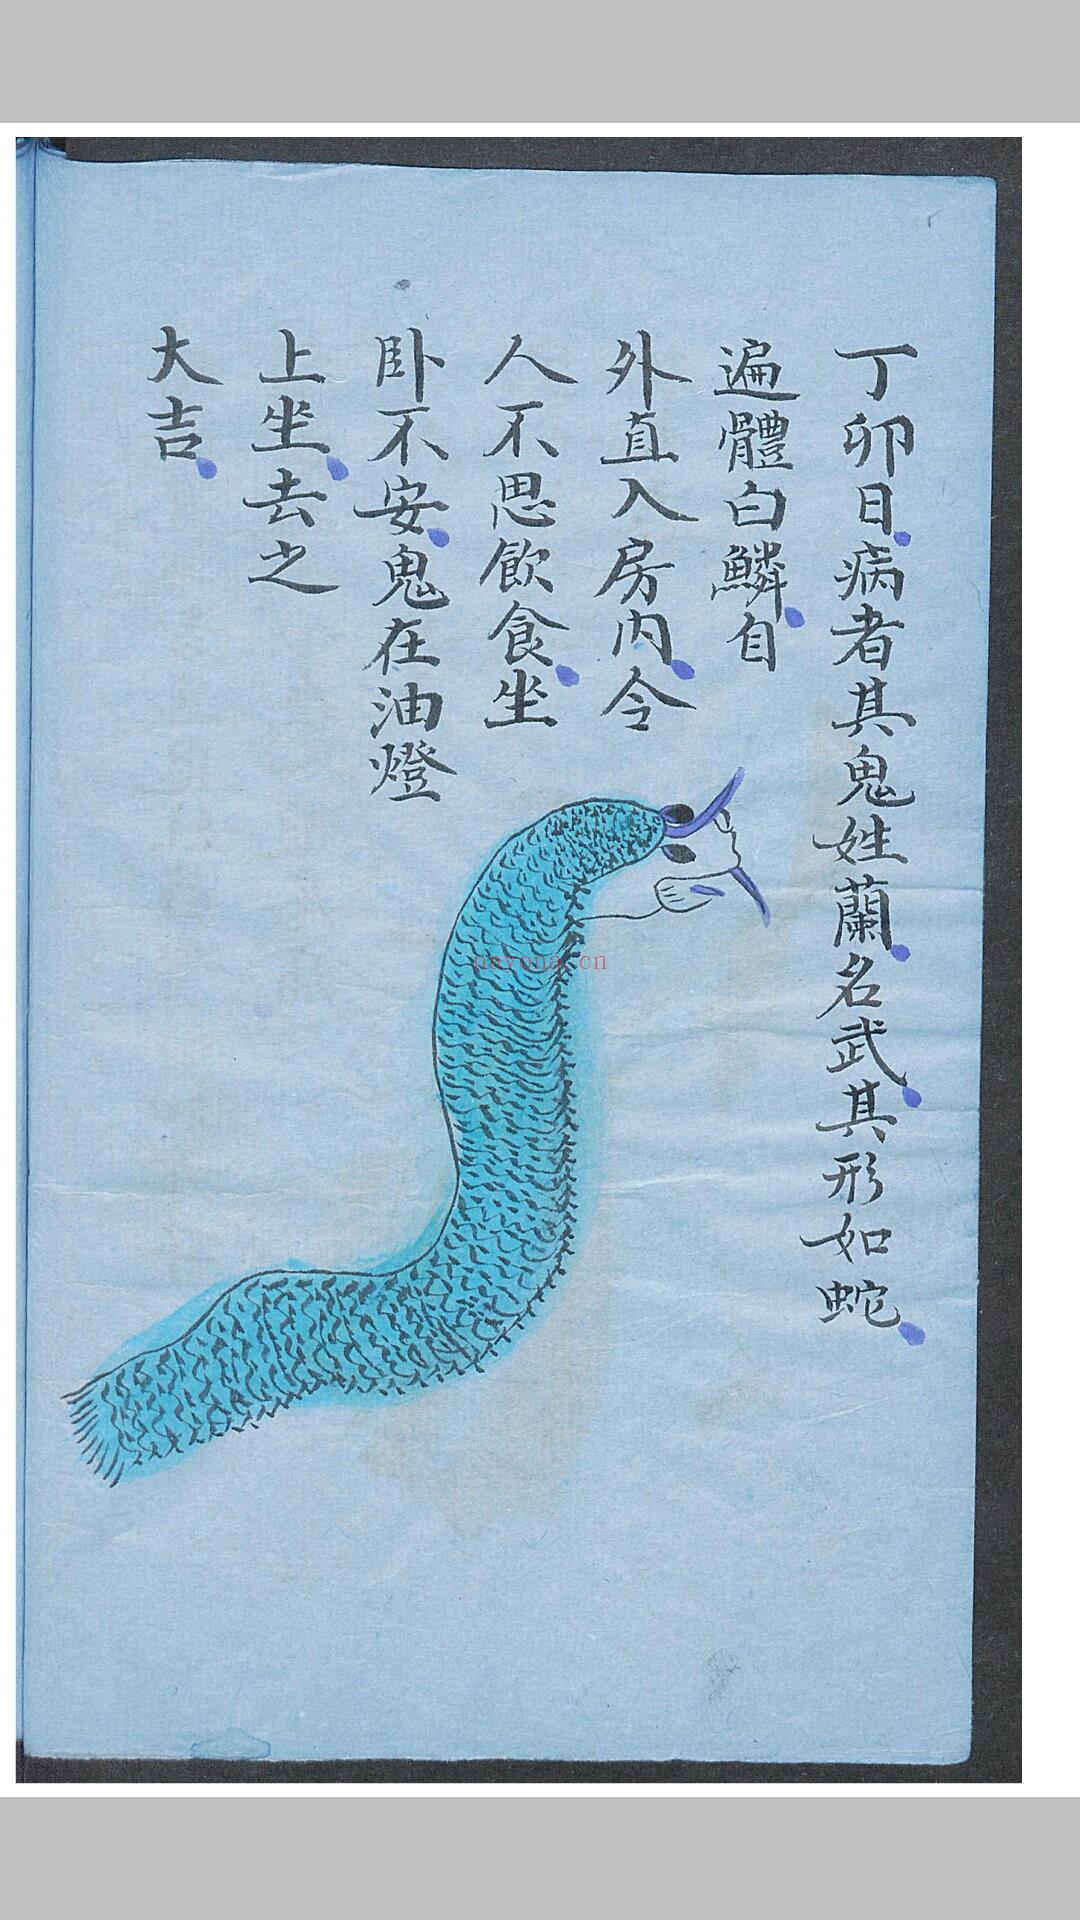 丁卯日病者其鬼姓蘭名武其形如蛇
遍體白鱗自
外直入房内令
人不思飲食坐
卧不安鬼在油燈
上坐去之
大吉
nayona.cn